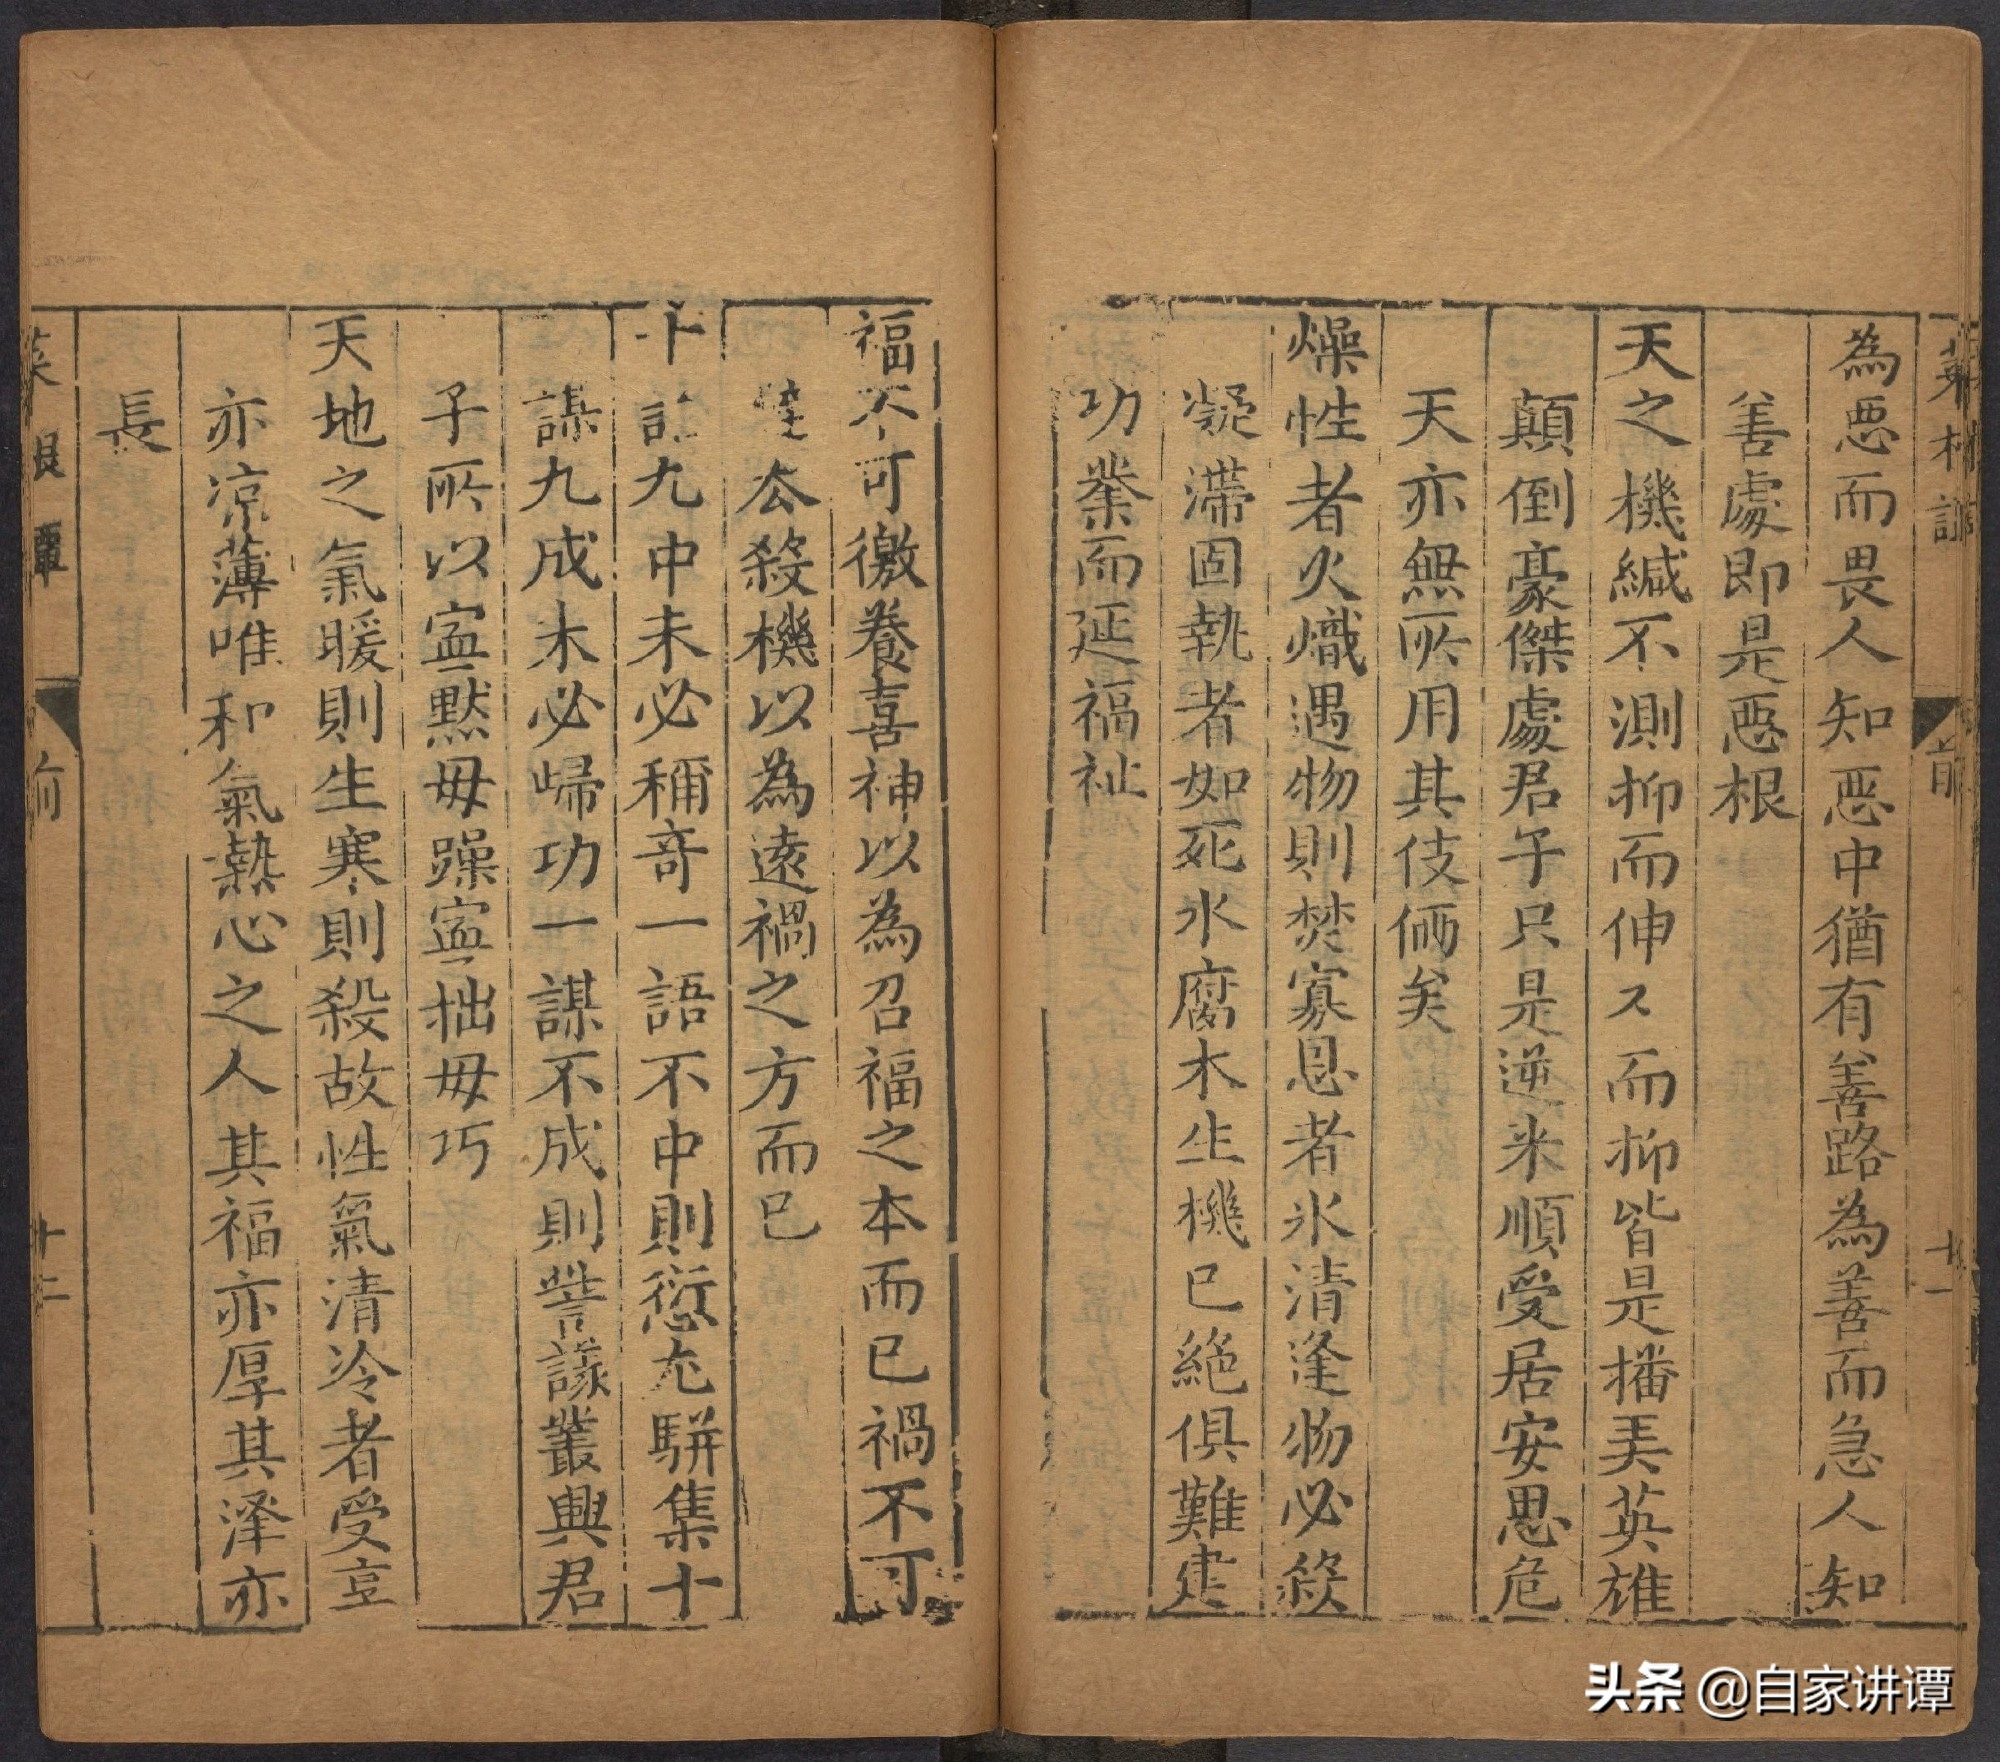 菜根譚
前
十一
為惡而畏人知惡中猶有善路為善而急人知
善處即是惡根
天之機緘不測抑而伸々而抑皆是播弄英雄
顛倒豪傑處君子只是逆来順受居安思危
天亦無所用其伎倆矣
燥性者火熾遇物則焚寡恩者氷清逢物必殺
凝滯固執者如死水腐木生機已絶俱難建
功業而延福祉
福不可徼養喜神以為召福之本而已禍不可
去殺機以為遠禍之方而已
十語九中未必稱竒一語不中則愆尤駢集十
謀九成未必歸功一謀不成則訾議叢興君
子所以寧黙毋躁寧拙毋巧
天地之氣暖則生寒則殺故性氣清冷者受享
亦凉薄唯和氣熱心之人其福亦厚其澤亦
長
菜根譚
前
十二
头条 @自家讲谭